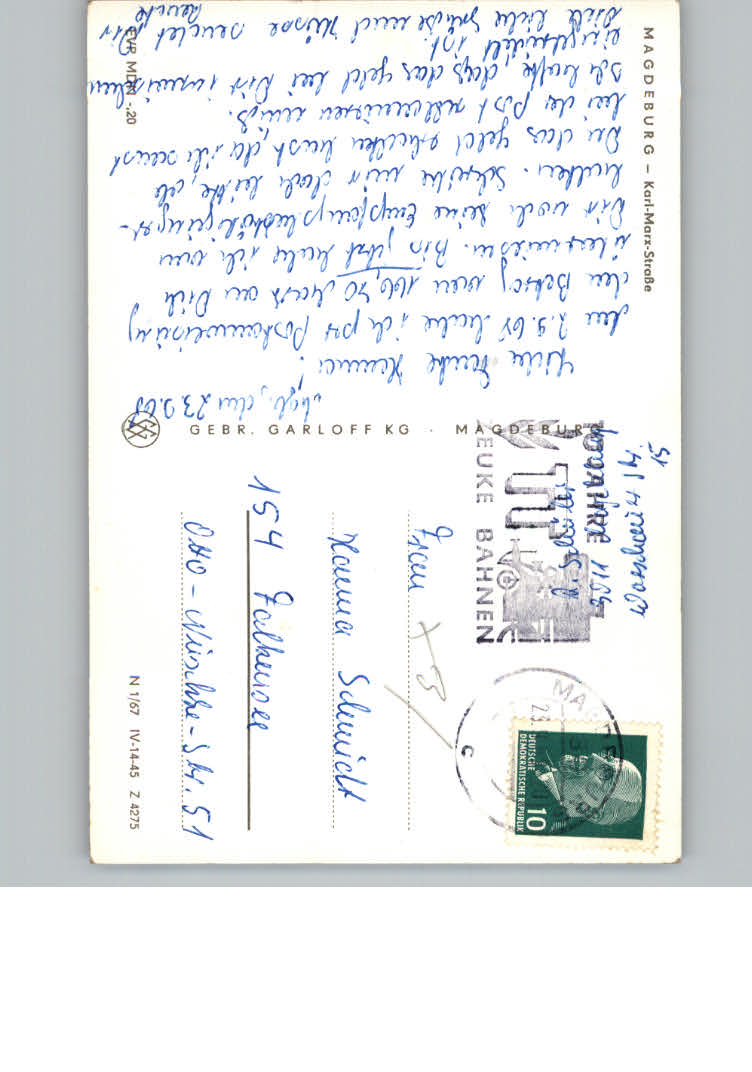 MAGDEBURG – Karl-Marx-Straße
Mgb., den 23.9.69
Liebe Hanna!
den 2.9.69 habe ich per Postanweisung
den Betrag von 166,50 Mark an Dich
überwiesen. Bis jetzt habe ich von
Dir noch keine Empfangsbestätigung er-
halten. Schreibe mir doch bitte, ob
Du das Geld erhalten hast, da ich sonst
bei der Post reklamieren muß.
Ich hoffe, daß das Geld bei Dir inzwischen
eingetrudelt ist.
Viele liebe Grüße und Küsse sendet Dir
EVP MDN -,20
GEBR. GARLOFF KG · MAGDEBURG
JAHRE
NEUKE BAHNEN
3011
15
MAGDEBURG
23.
C
DEUTSCHE
DEMOKRATISCHE REPUBLIK
10
Frau
Hanna Schmidt
154 Falkensee
Otto-Nuschke-Str. 51
N 1/67 IV-14-45 Z 4275